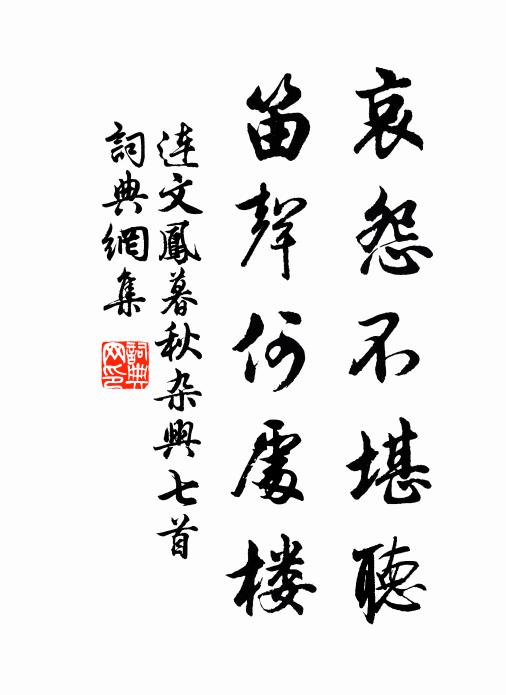 哀怨不堪聽
笛聲何處楼
連文鳳暮秋杂興七首
詞典網集
詞典网印